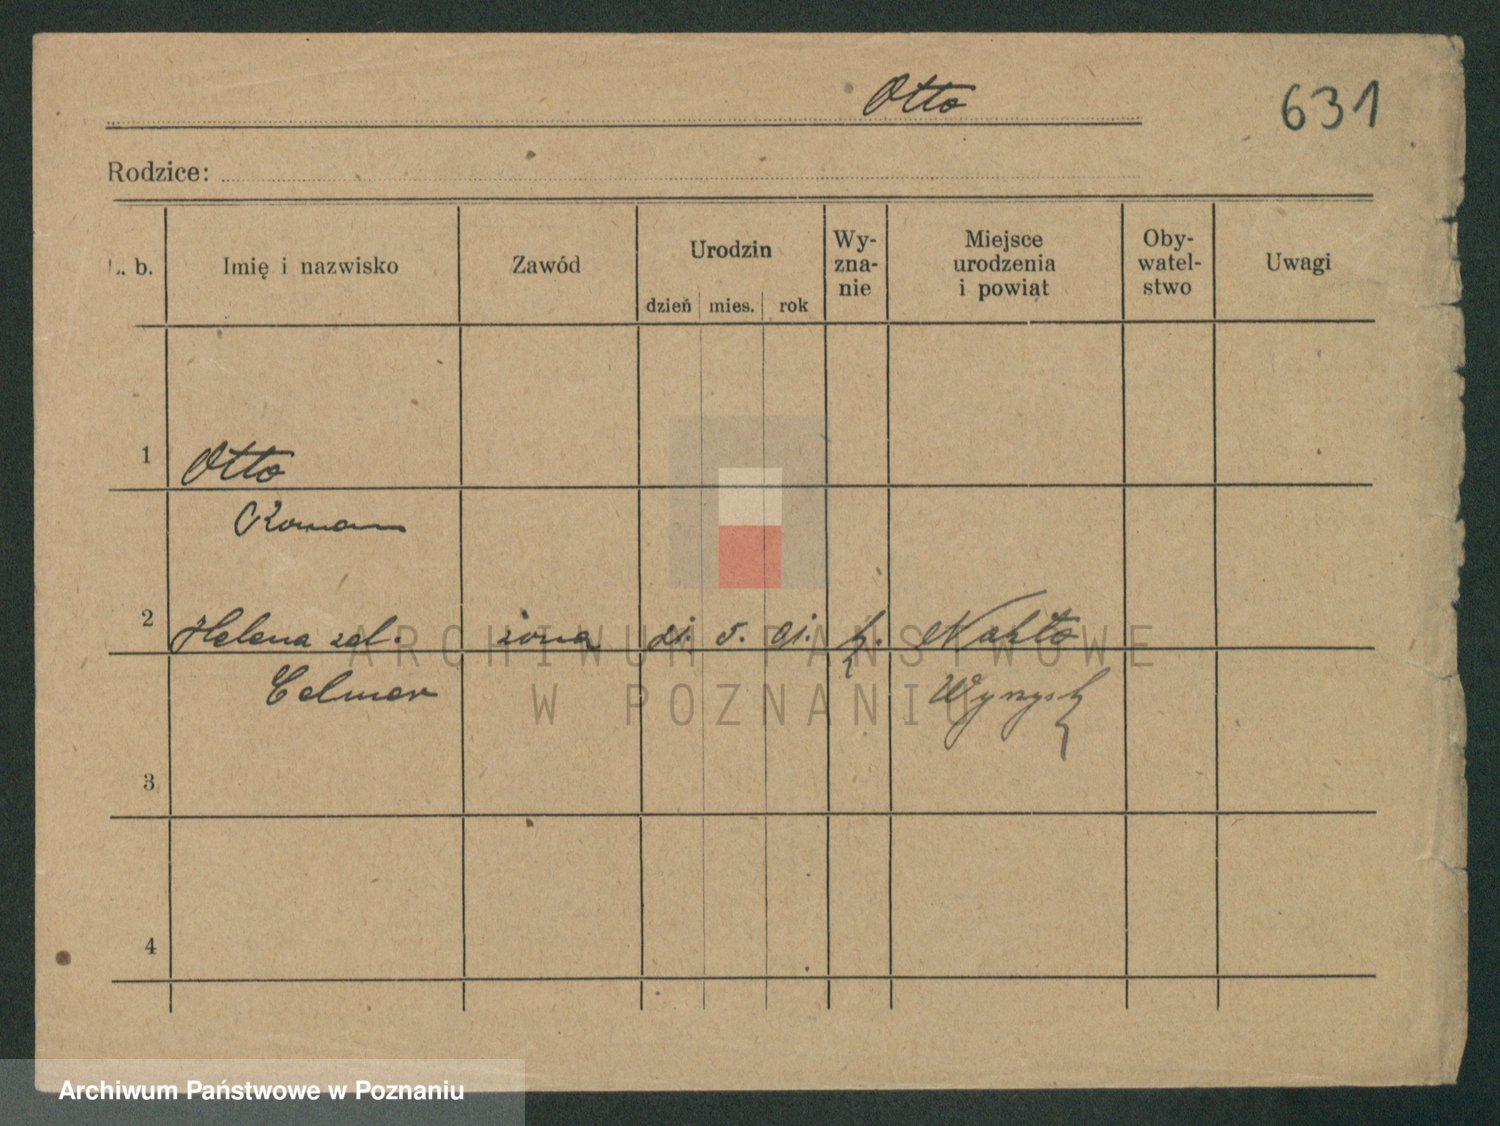 Otto
631
Rodzice:
L. b.
Imię i nazwisko
Zawód
Urodzin
dzień mies. rok
Wy-
zna-
nie
Miejsce
urodzenia
i powiat
Oby-
watel-
stwo
Uwagi
1 Otto
Roman
2 Helena zd. żona 21. 5. 01. k. Nakło
Celmer Wyrzysk
3
4
ARCHIWUM PAŃSTWOWE
W POZNANIU
Archiwum Państwowe w Poznaniu